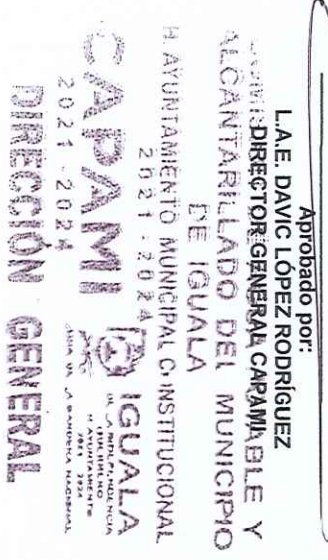 Aprobado por:
L.A.E. DAVIC LÓPEZ RODRÍGUEZ
DIRECTOR GENERAL CAPAMI
ABLE Y
ALCANTARILLADO DEL MUNICIPIO
DE IGUALA
H. AYUNTAMIENTO MUNICIPAL CONSTITUCIONAL
2021 - 2024
CAPAMI
2021 - 2024
IGUALA
DE LA INDEPENDENCIA
H. AYUNTAMIENTO
2021 2024
CUNA DE LA BANDERA NACIONAL
DIRECCIÓN GENERAL